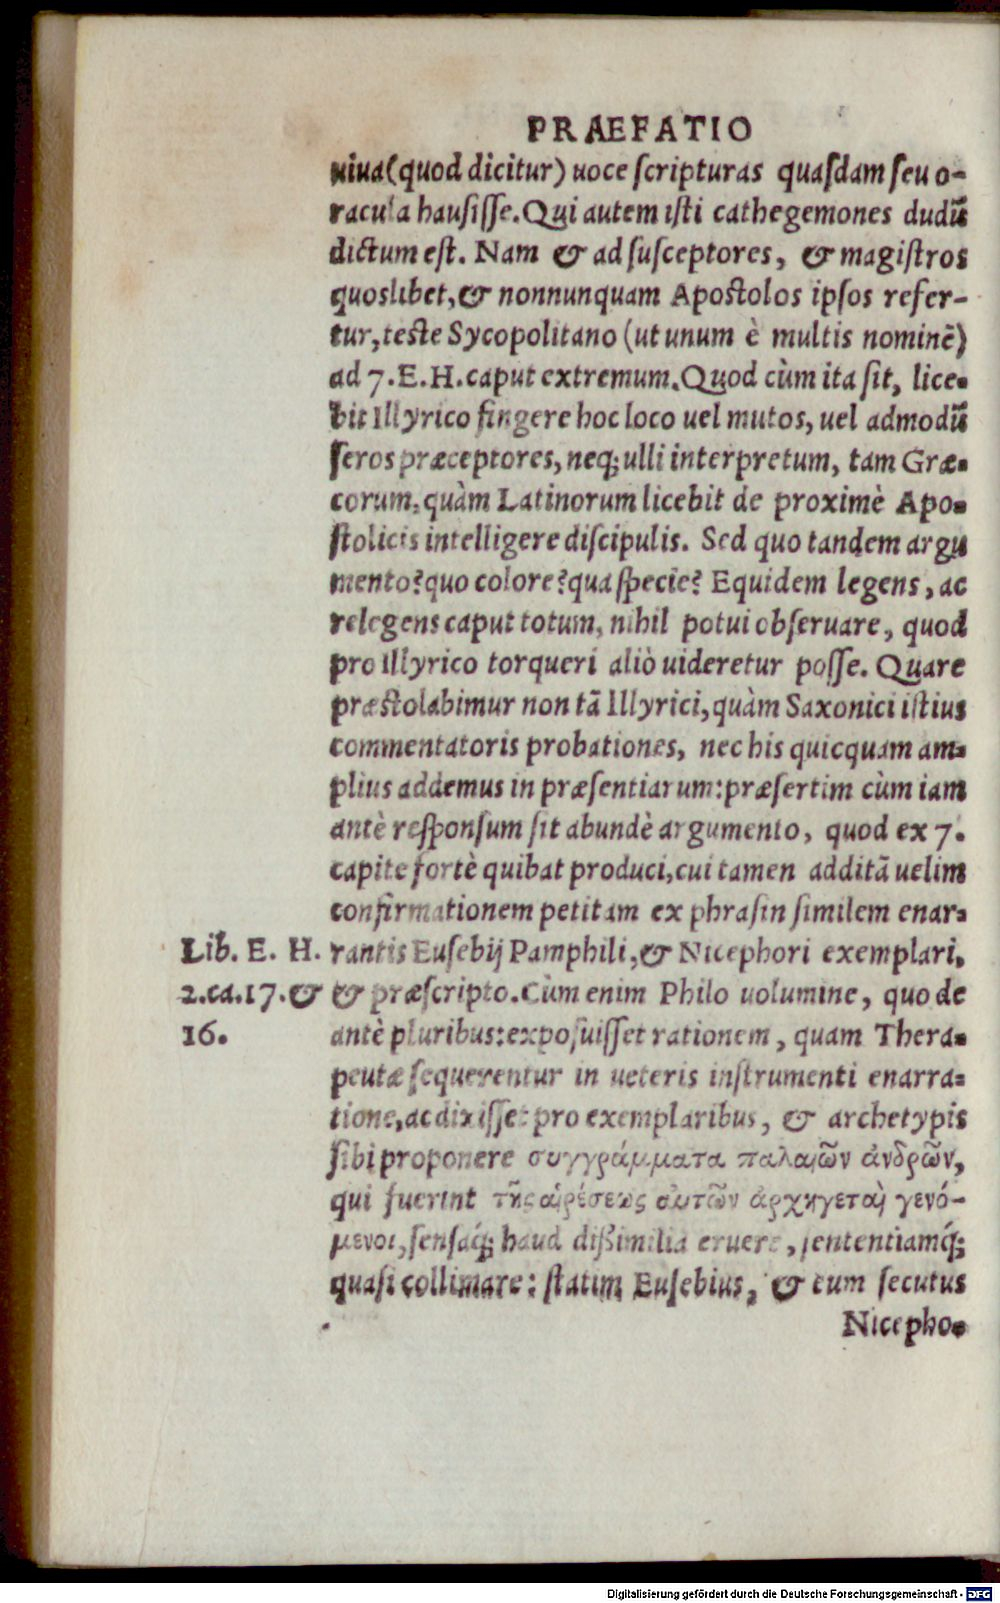 PRAEFATIO
uiua (quod dicitur) uoce scripturas quasdam seu o-
racula hausisse. Qui autem isti cathegemones dudū
dictum est. Nam & ad susceptores, & magistros
quoslibet, & nonnunquam Apostolos ipsos refer-
tur, teste Sycopolitano (ut unum è multis nominē)
ad 7. E. H. caput extremum. Quod cùm ita sit, lice-
bit Illyrico fingere hoc loco uel mutos, uel admodū
seros præceptores, neq; ulli interpretum, tam Græ-
corum, quàm Latinorum licebit de proximè Apo-
stolicis intelligere discipulis. Sed quo tandem argu
mento? quo colore? qua specie? Equidem legens, ac
relegens caput totum, nihil potui obseruare, quod
pro Illyrico torqueri aliò uideretur posse. Quare
præstolabimur non tā Illyrici, quàm Saxonici istius
commentatoris probationes, nec his quicquam am-
plius addemus in præsentiarum: præsertim cùm iam
antè responsum sit abundè argumento, quod ex 7.
capite fortè quibat produci, cui tamen additā uelim
confirmationem petitam ex phrasin similem enar-
Lib. E. H. rantis Eusebij Pamphili, & Nicephori exemplari,
2. ca. 17. & & præscripto. Cùm enim Philo uolumine, quo de
16. antè pluribus: exposuisset rationem, quam Thera-
peutæ sequerentur in ueteris instrumenti enarra-
tione, ac dixisset pro exemplaribus, & archetypis
sibi proponere συγγράμματα παλαιῶν ἀνδρῶν,
qui fuerint τῆς αἱρέσεως αὐτῶν ἀρχηγεταὶ γενό-
μενοι, sensaq́; haud dißimilia eruere, sententiamq́;
quasi collimare: statim Eusebius, & eum secutus
Nicepho-
Digitalisierung gefördert durch die Deutsche Forschungsgemeinschaft - DFG